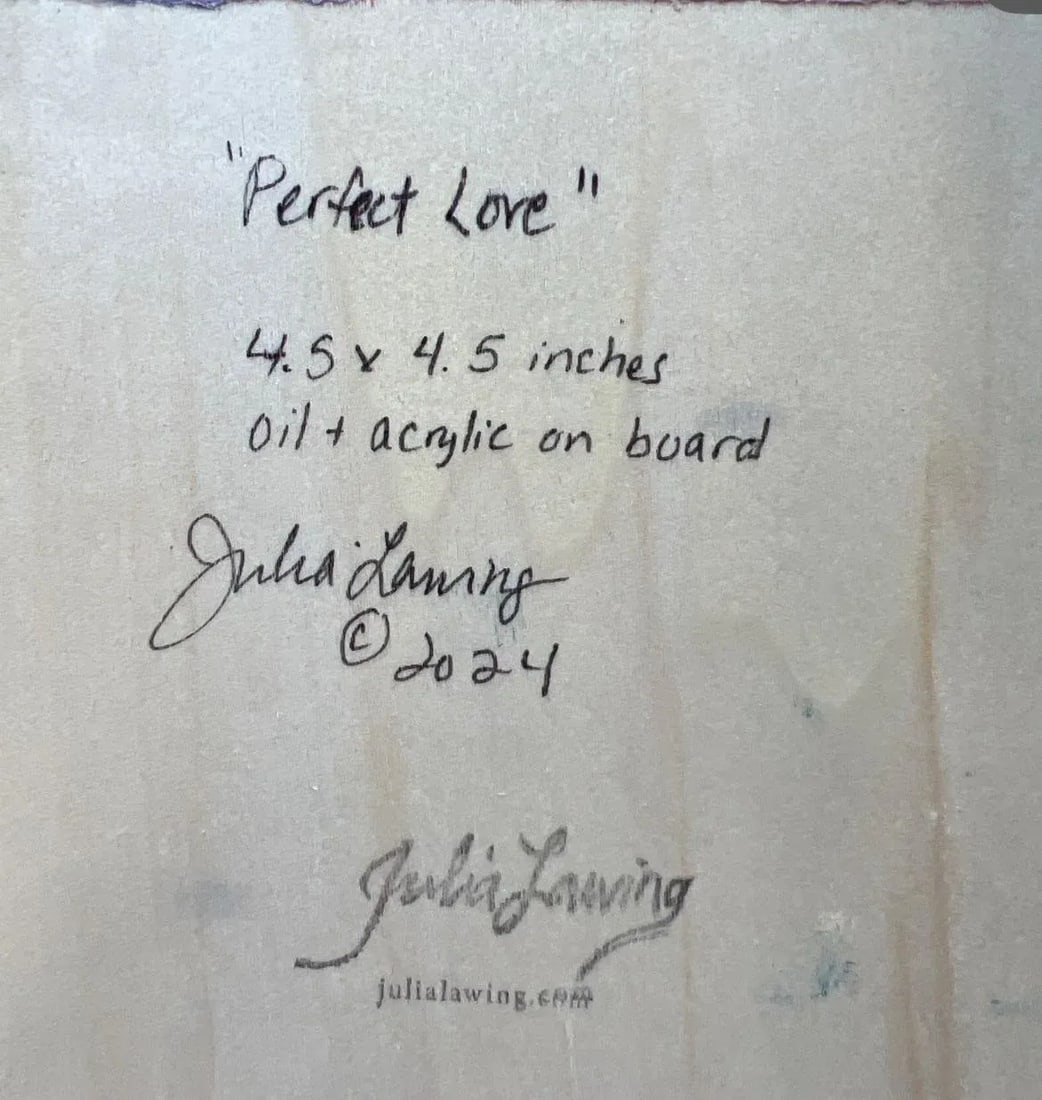 "Perfect Love"
4.5 x 4.5 inches
oil + acrylic on board
Julia Lawing
© 2024
Julia Lawing
julialawing.com